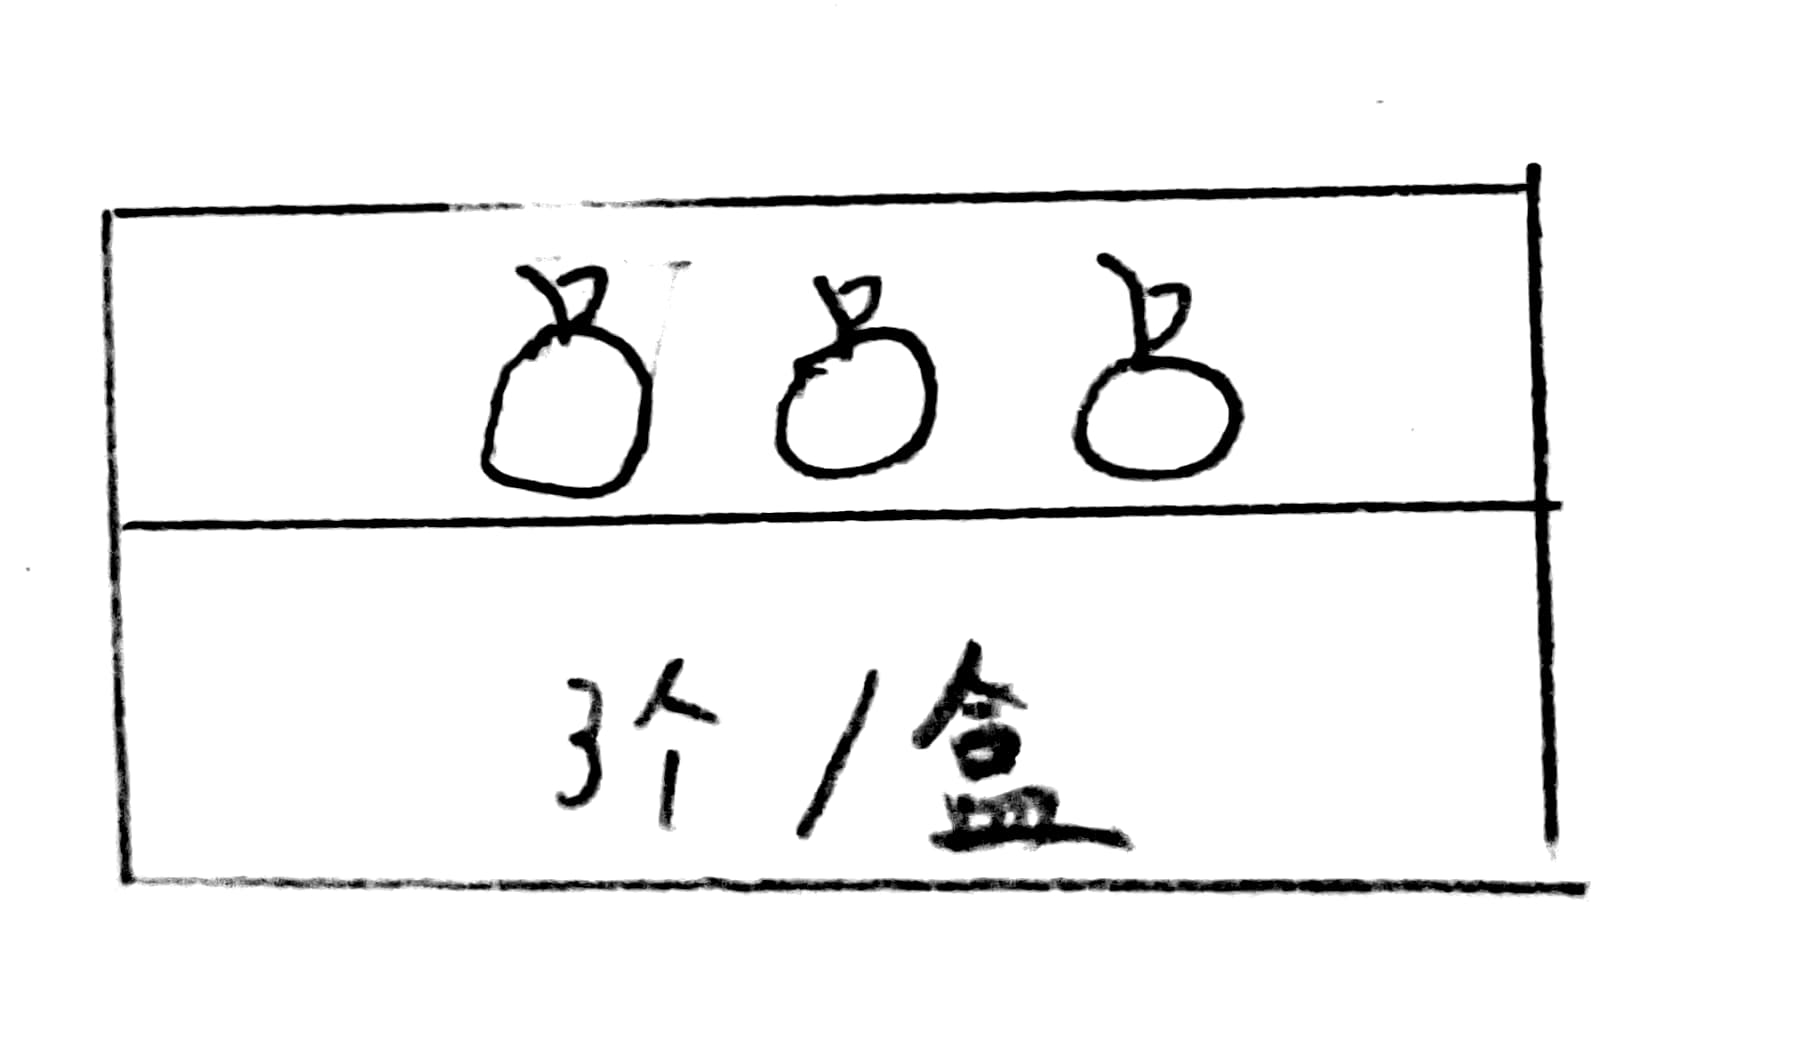 3个/盒